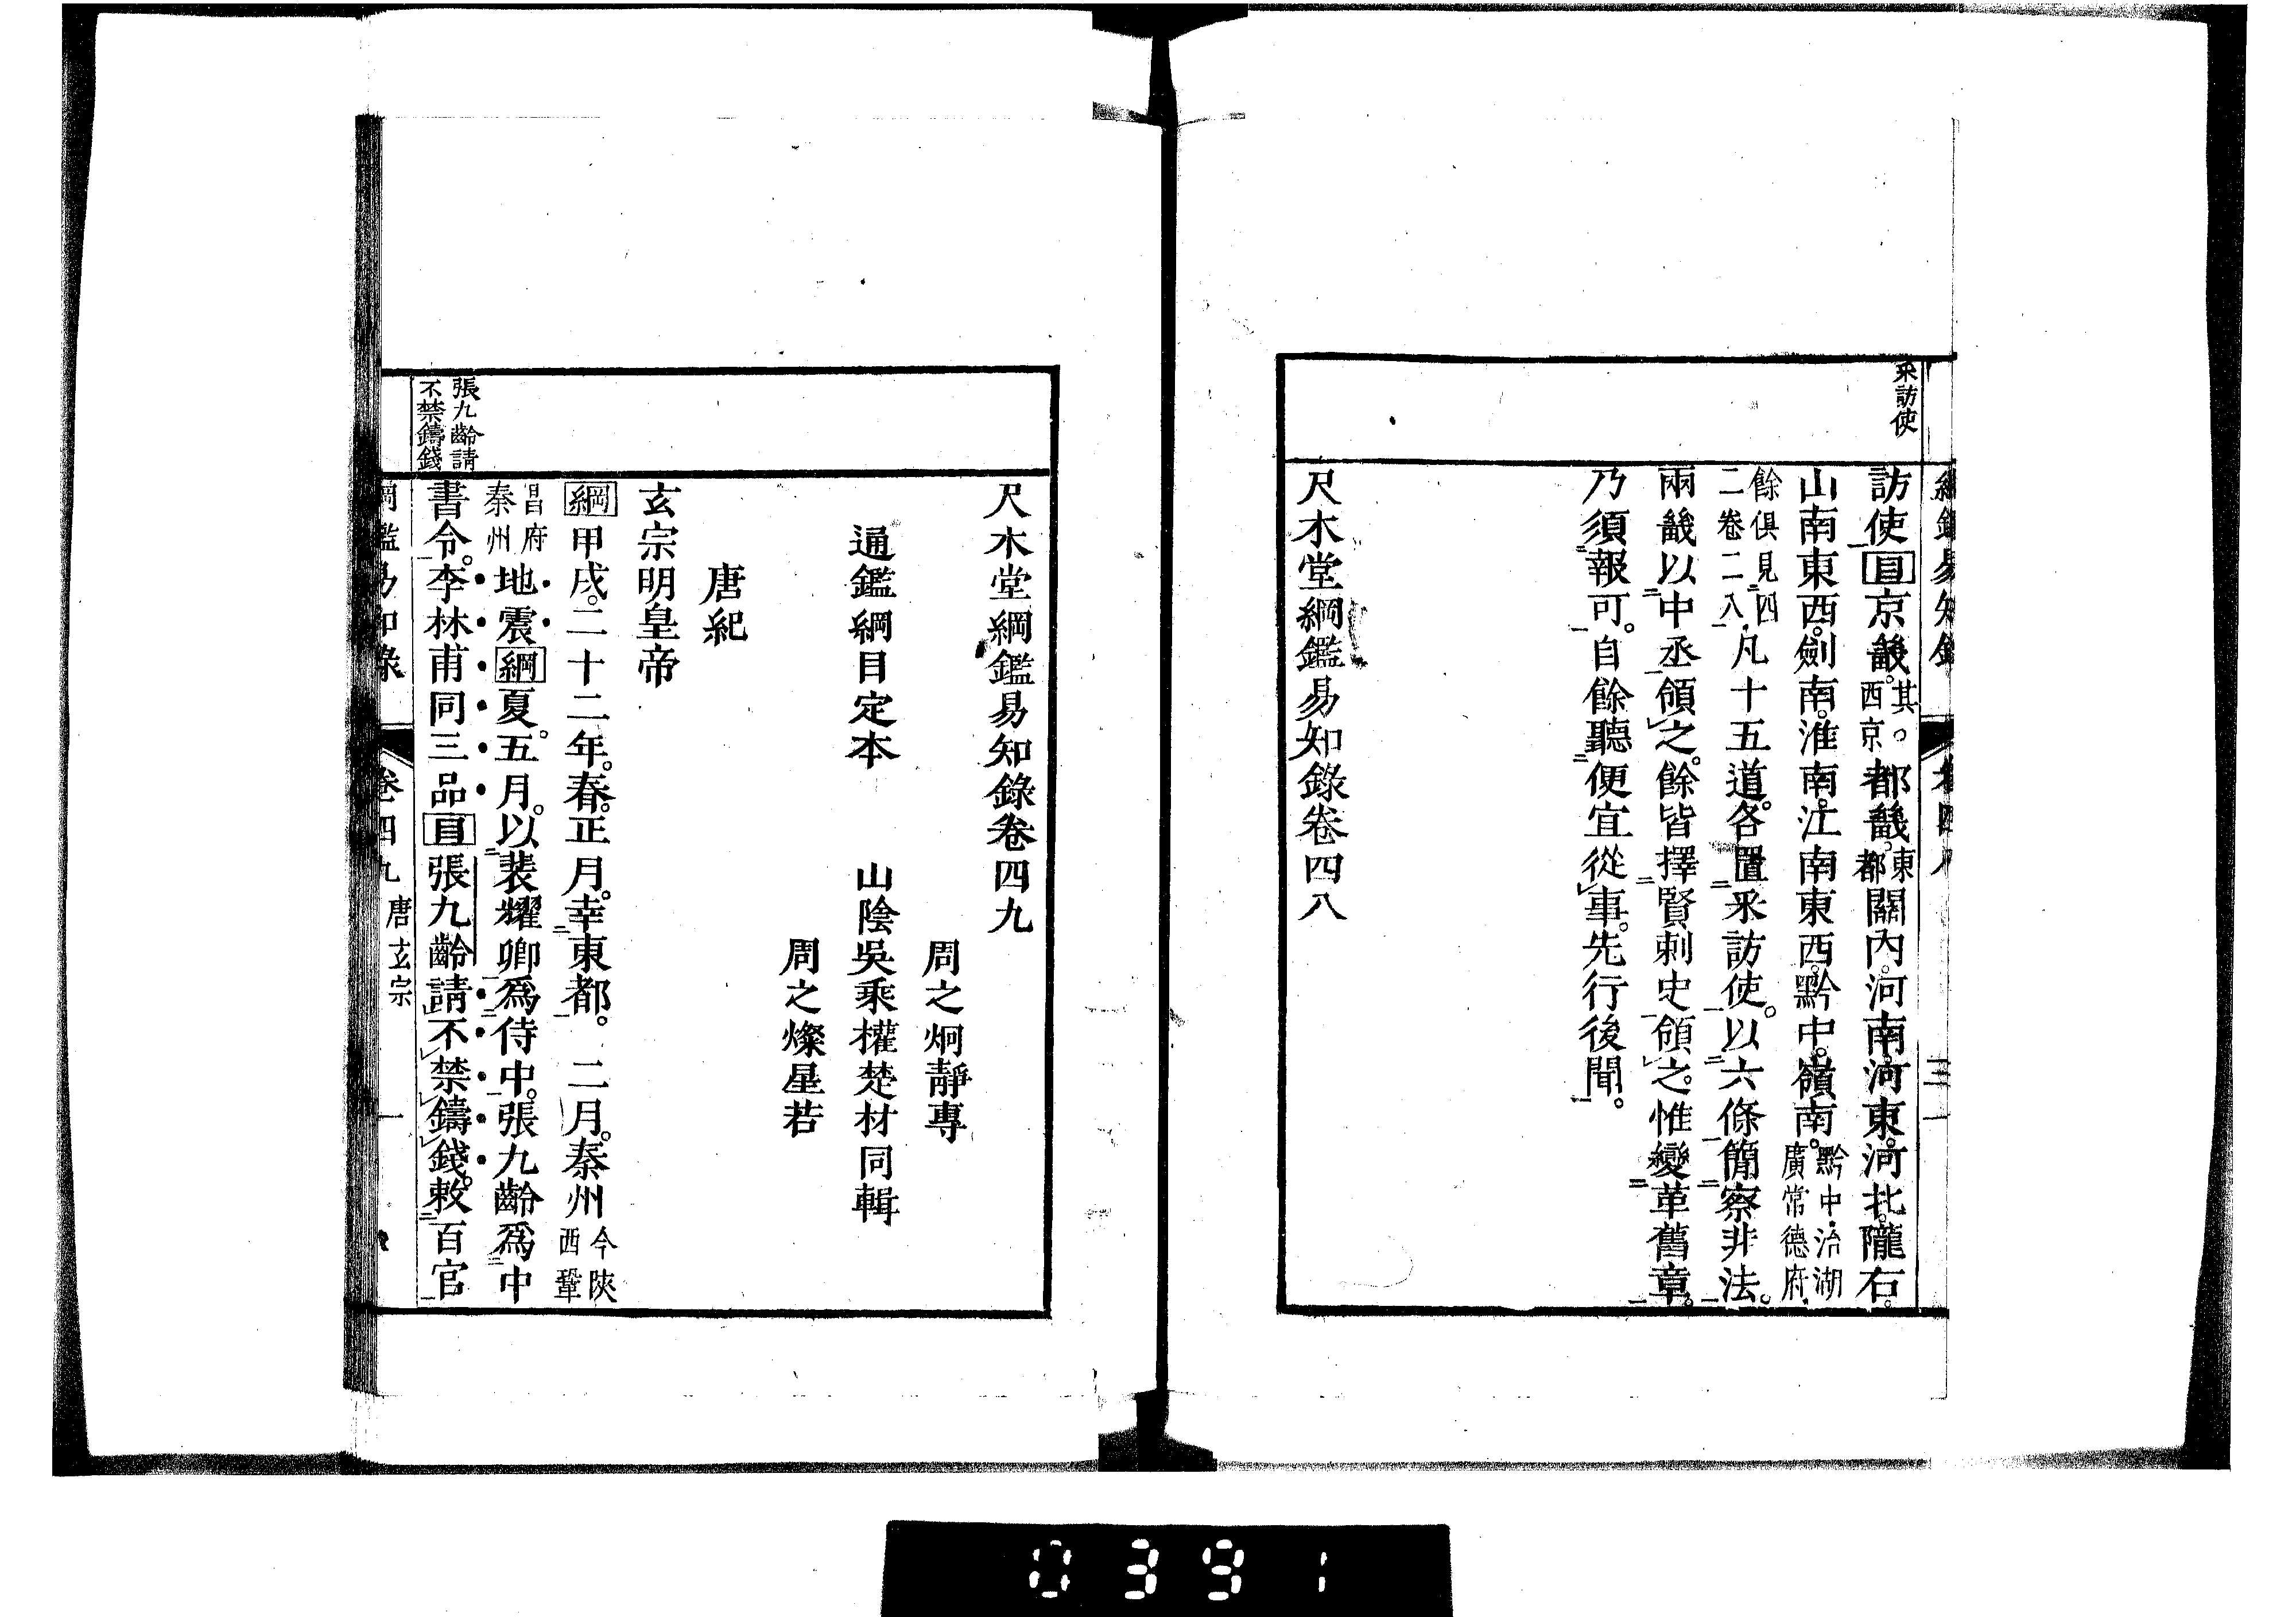 采訪使
訪使目京畿。其西京。都畿。東都關內。河南。河東。河北。隴右。
山南東西。劍南。淮南。江南東西。黔中。嶺南。黔中治湖廣常德府
餘俱見四二卷二八凡十五道。各置采訪使。以六條簡察非法。
兩畿以中丞領之。餘皆擇賢刺史領之。惟變革舊章。
乃須報可。自餘聽便宜從事。先行後聞。
尺木堂綱鑑易知錄卷四八
尺木堂綱鑑易知錄卷四九
周之炯靜專
通鑑綱目定本 山陰吳乘權楚材同輯
周之燦星若
唐紀
玄宗明皇帝
綱甲戌。二十二年。春。正月。幸東都。 二月。秦州今陝西鞏
昌府秦州地震綱夏。五月。以裴耀卿爲侍中。張九齡爲中
張九齡請不禁鑄錢
書令。李林甫同三品目張九齡請不禁鑄錢。敕百官
綱鑑易知錄 卷四九 唐玄宗 一
0391